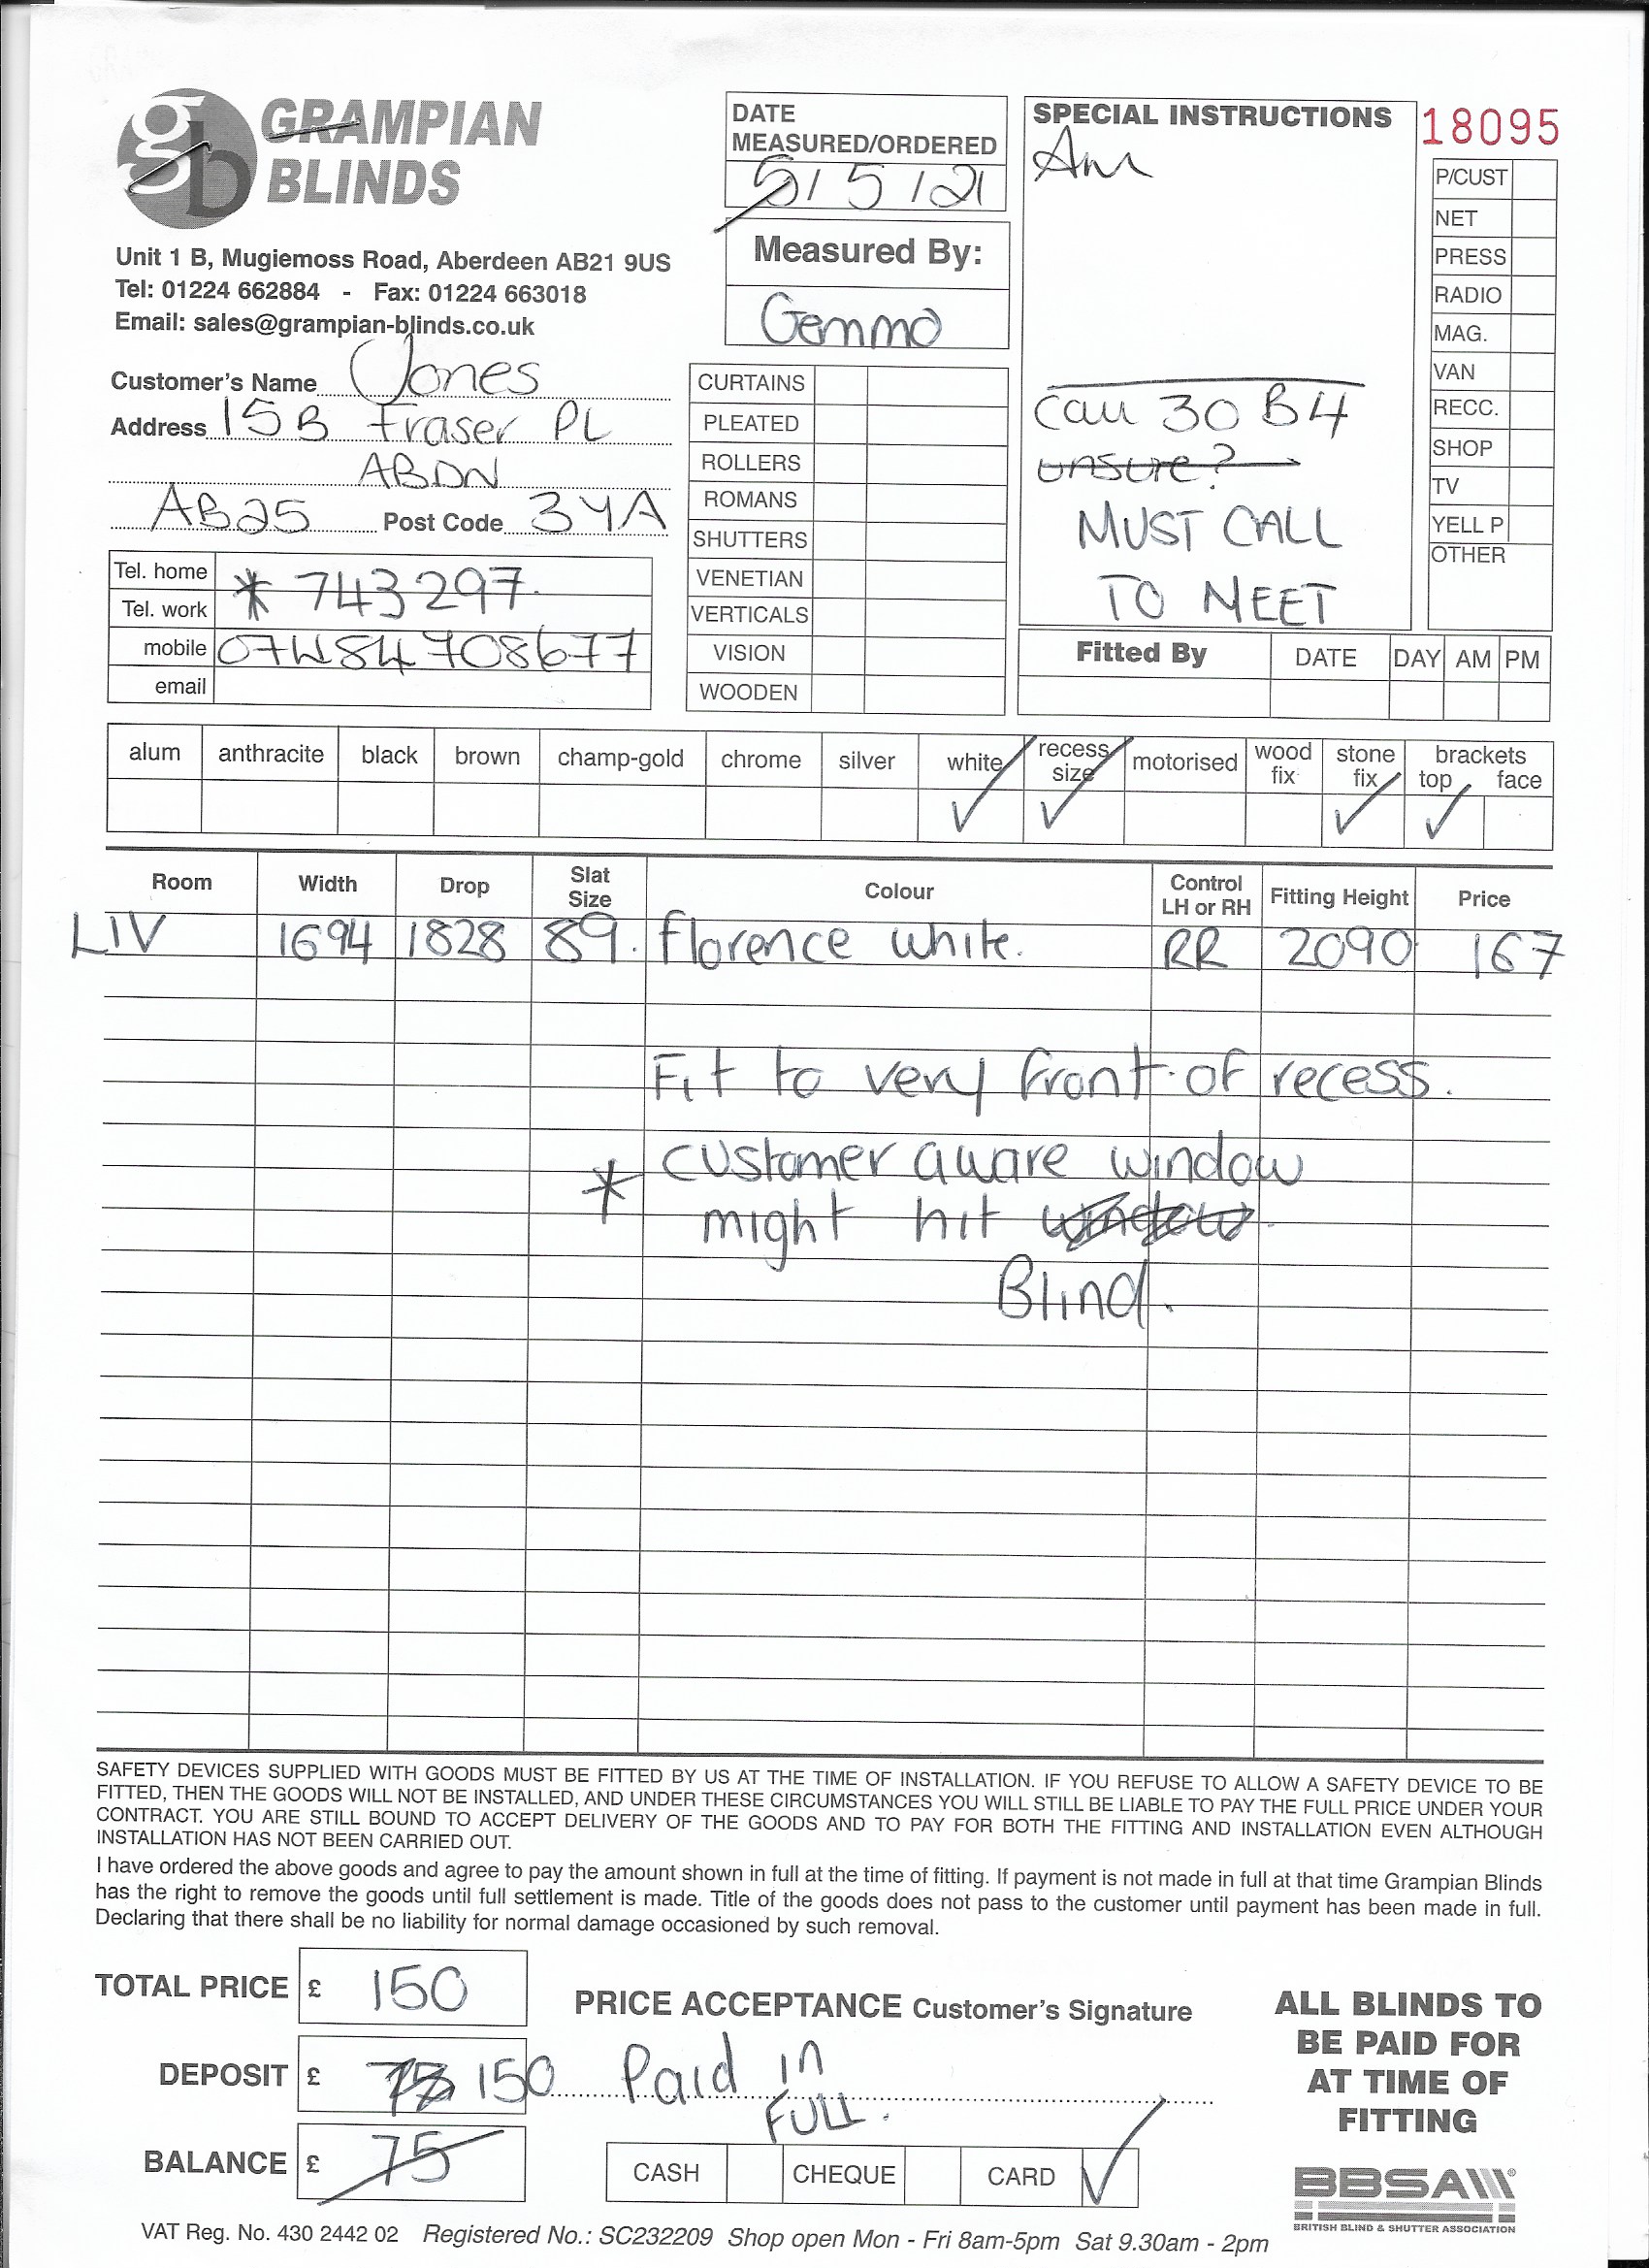 GRAMPIAN
BLINDS
Unit 1 B, Mugiemoss Road, Aberdeen AB21 9US
Tel: 01224 662884 - Fax: 01224 663018
Email: sales@grampian-blinds.co.uk
Customer's Name Jones
Address 15B Fraser PL
ABDN
AB25 Post Code 3YA
Tel. home * 743297
Tel. work
mobile 07484 708677
email
DATE
MEASURED/ORDERED
5/5/21
Measured By:
Gemma
CURTAINS
PLEATED
ROLLERS
ROMANS
SHUTTERS
VENETIAN
VERTICALS
VISION
WOODEN
SPECIAL INSTRUCTIONS
Am
Call 30 B4
unsure?
MUST CALL
TO MEET
18095
P/CUST
NET
PRESS
RADIO
MAG.
VAN
RECC.
SHOP
TV
YELL P
OTHER
Fitted By DATE DAY AM PM
alum anthracite black brown champ-gold chrome silver white recess size motorised wood fix stone fix brackets top face
✓ ✓ ✓ ✓
Room Width Drop Slat Size Colour Control LH or RH Fitting Height Price
LIV 1694 1828 89. Florence white. RR 2090 167
Fit to very front of recess.
* customer aware window
might hit window
Blind.
SAFETY DEVICES SUPPLIED WITH GOODS MUST BE FITTED BY US AT THE TIME OF INSTALLATION. IF YOU REFUSE TO ALLOW A SAFETY DEVICE TO BE
FITTED, THEN THE GOODS WILL NOT BE INSTALLED, AND UNDER THESE CIRCUMSTANCES YOU WILL STILL BE LIABLE TO PAY THE FULL PRICE UNDER YOUR
CONTRACT. YOU ARE STILL BOUND TO ACCEPT DELIVERY OF THE GOODS AND TO PAY FOR BOTH THE FITTING AND INSTALLATION EVEN ALTHOUGH
INSTALLATION HAS NOT BEEN CARRIED OUT.
I have ordered the above goods and agree to pay the amount shown in full at the time of fitting. If payment is not made in full at that time Grampian Blinds
has the right to remove the goods until full settlement is made. Title of the goods does not pass to the customer until payment has been made in full.
Declaring that there shall be no liability for normal damage occasioned by such removal.
TOTAL PRICE £ 150
DEPOSIT £ 75 150
BALANCE £ 75
PRICE ACCEPTANCE Customer's Signature
Paid in
FULL.
CASH CHEQUE CARD ✓
ALL BLINDS TO
BE PAID FOR
AT TIME OF
FITTING
BBSA
BRITISH BLIND & SHUTTER ASSOCIATION
VAT Reg. No. 430 2442 02 Registered No.: SC232209 Shop open Mon - Fri 8am-5pm Sat 9.30am - 2pm